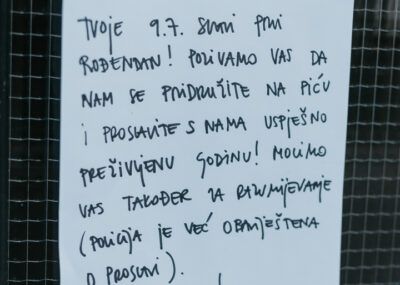 TVOJE 9.7. SLAVI PRVI
ROĐENDAN! POZIVAMO VAS DA
NAM SE PRIDRUŽITE NA PIĆU
I PROSLAVITE S NAMA USPJEŠNO
PREŽIVLJENU GODINU! MOLIMO
VAS TAKOĐER ZA RAZUMIJEVANJE
(POLICIJA JE VEĆ OBAVIJEŠTENA
O PROSLAVI).